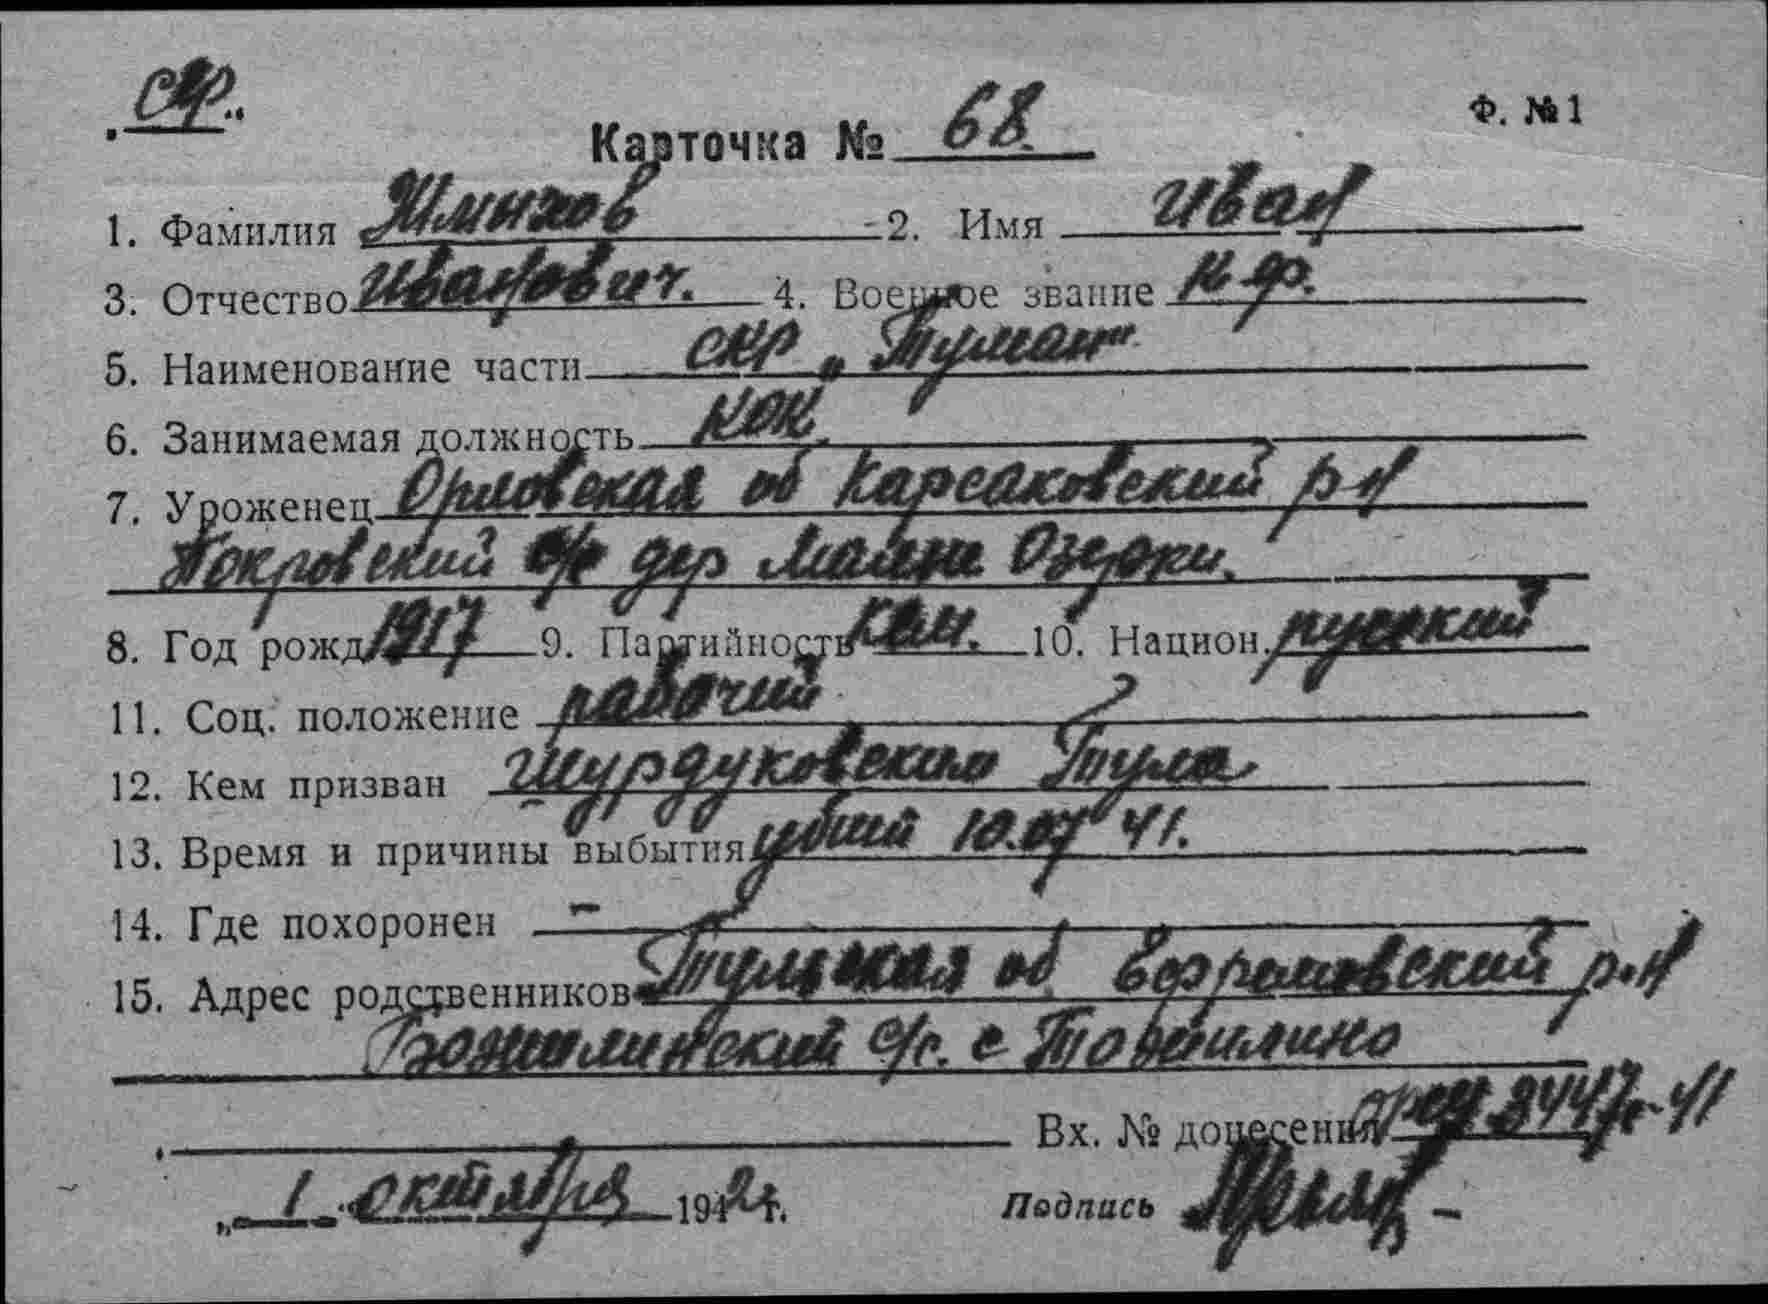 Ф. №1
Карточка № 68.
1. Фамилия 2. Имя Иван
3. Отчество Иванович. 4. Военное звание к-ф.
5. Наименование части СКР „Туман"
6. Занимаемая должность кок.
7. Уроженец Орловская об Карсаковский р-н
Покровский с/с дер Малые Озерки.
8. Год рожд 1917 9. Партийность 10. Национ. русский
11. Соц. положение рабочий
12. Кем призван Тула
13. Время и причины выбытия убит 10.09 41.
14. Где похоронен —
15. Адрес родственников Тульская об р-н
с/с. с
Вх. № донесения 41
„ 1 " октября 1942 г. Подпись